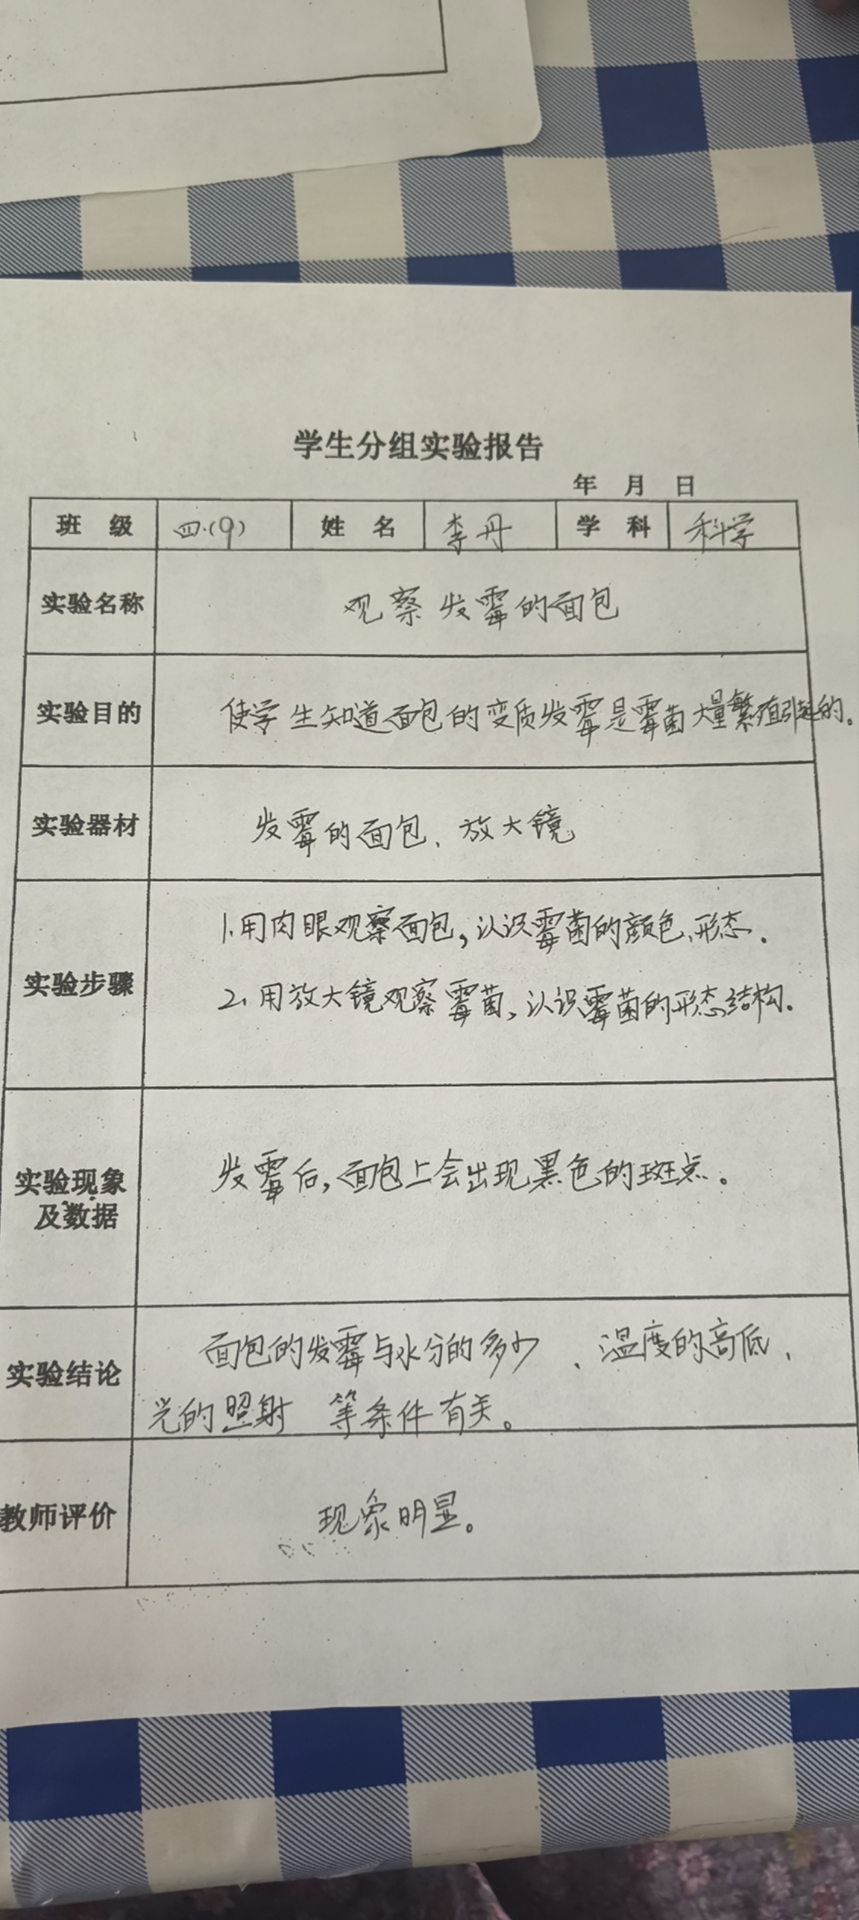 学生分组实验报告
年 月 日
班 级 四.(9) 姓 名 李丹 学 科 科学
实验名称 观察发霉的面包
实验目的 使学生知道面包的变质发霉是霉菌大量繁殖引起的。
实验器材 发霉的面包、放大镜
实验步骤
1.用肉眼观察面包,认识霉菌的颜色、形态.
2.用放大镜观察霉菌,认识霉菌的形态结构.
实验现象
及数据
发霉后,面包上会出现黑色的斑点。
实验结论
面包的发霉与水分的多少、温度的高低、
光的照射 等条件有关。
教师评价 现象明显。